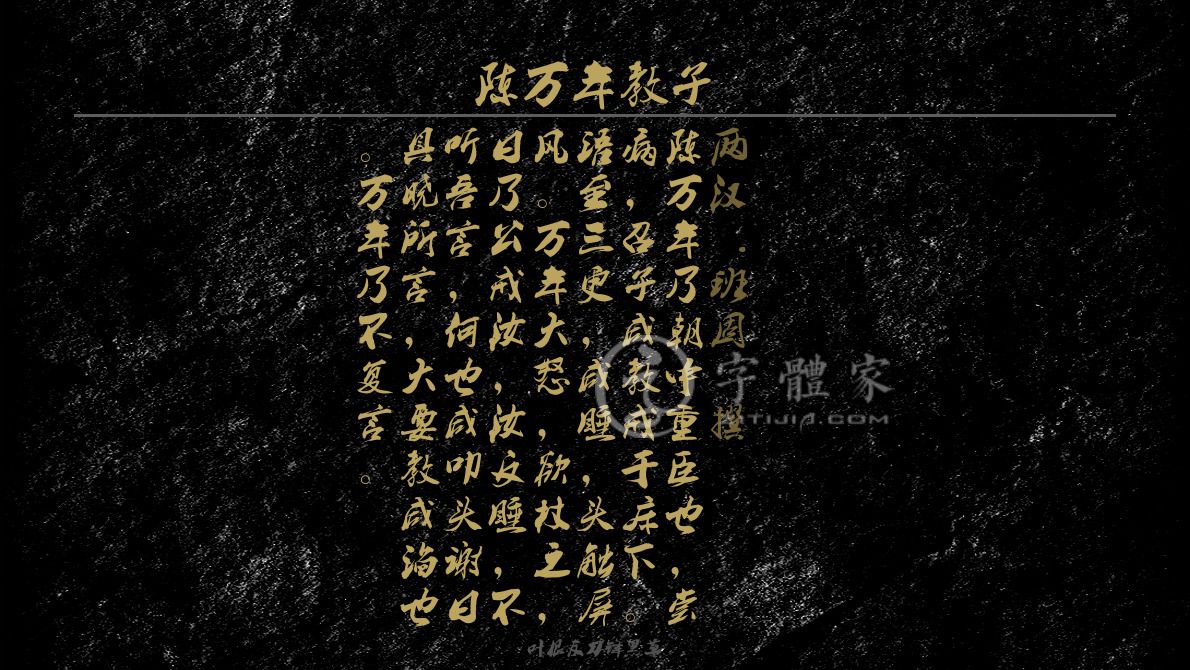 陈万年教子
两汉·班固 撰
陈万年乃朝中重臣也，尝
病，召子咸教咸于床下。
语至三更，咸睡，头触屏
风。万年大怒，欲杖之，
曰乃公戒汝，汝反睡，不
听吾言，何也咸叩头谢曰
具晓所言，大要教咸谄也
。万年乃不复言。
字體家
ZITIJIA.COM
叶根友刀锋黑草